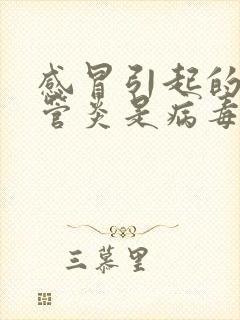 感冒引起的
管炎是病毒
三慕里